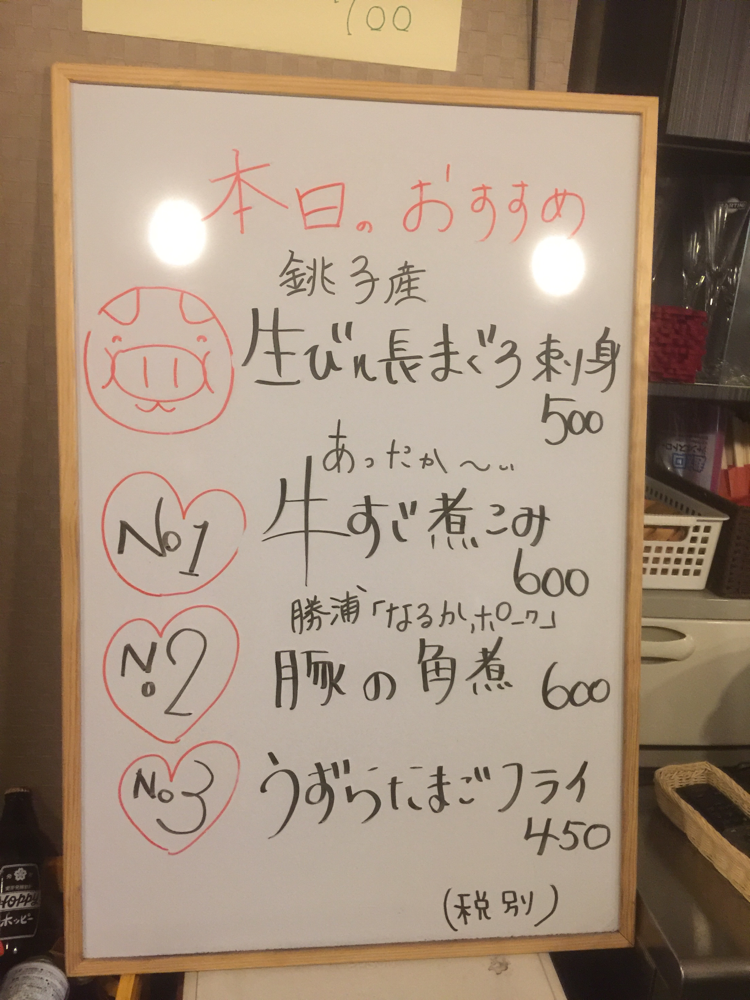 700
本日のおすすめ
銚子産
生びん長まぐろ刺身
500
あったか〜い
No1
牛すじ煮こみ
600
勝浦「なるかポーク」
No2
豚の角煮 600
No3
うずらたまごフライ
450
(税別)
HOPPY
ホッピー